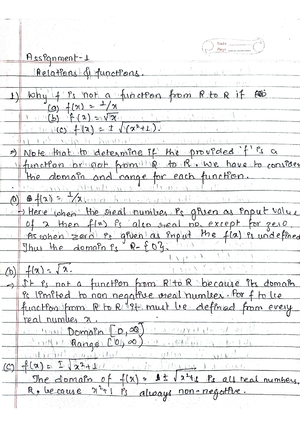 Assignment-1
Relations & functions.
1) Why f is not a function from R to R if
(a) f(x) = 1/x
(b) f(x) = √x
(c) f(x) = ± √(x²+1).
→ Note that to determine if the provided 'f' is a
function or not from R to R. We have to consider
the domain and range for each function.
f(x) = 1/x
→ Here when the real number is given as input value
of x then f(x) is also real no. except for zero
As when zero is given as input the f(x) is undefined
Thus the domain is R- {0}.
(b) f(x) = √x.
→ It is not a function from R to R because its domain
is limited to non negative real number. For f to be
function from R to R it must be defined from every
real number x.
Domain [0, ∞)
Range [0, ∞)
(c) f(x) = ± √x²+1
The domain of f(x) = ± √x²+1 is all real numbers,
R, because x²+1 is always non-negative.